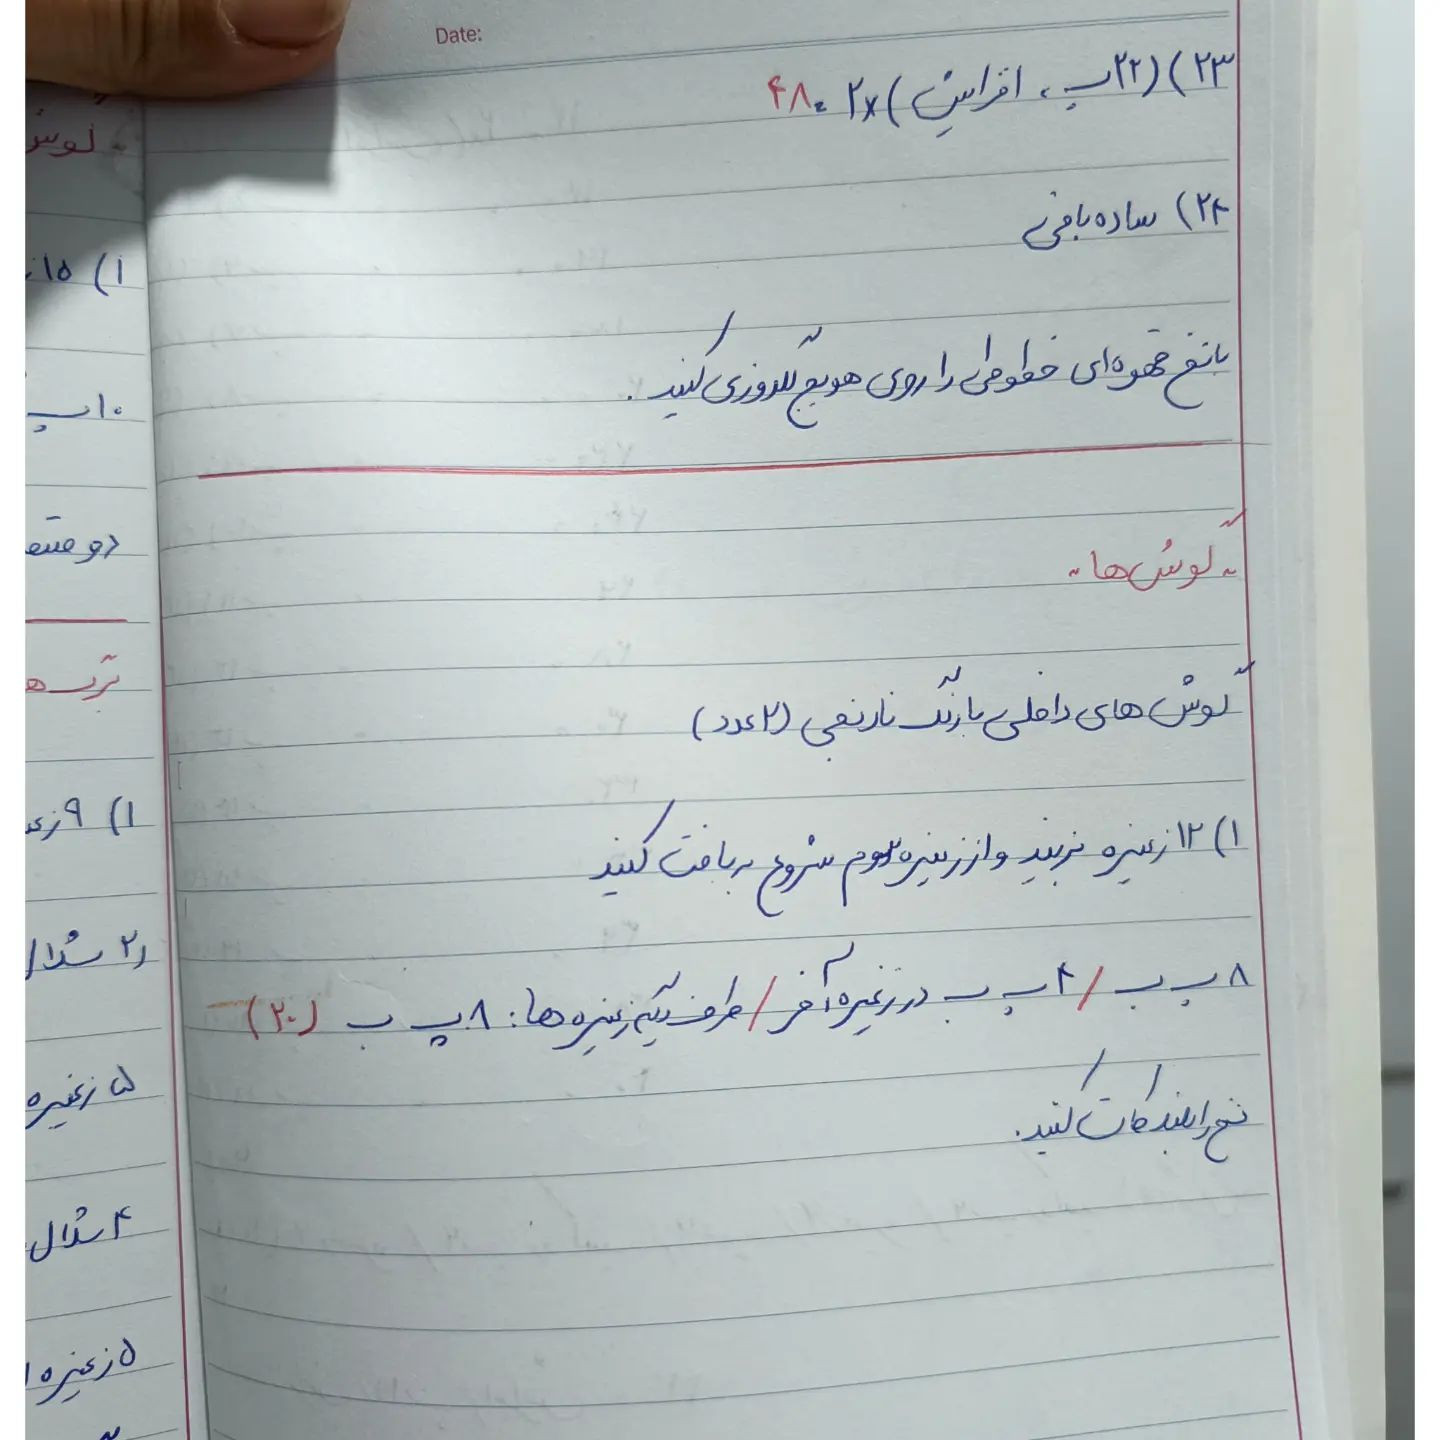 Date:
۲۳) (۲۲پ، افزایش) ×۲ = ۴۸
۲۴) ساده بافی
با نخ قهوه‌ای خطوطی را روی هویج گلدوزی کنید.
گوش‌ها
گوش های داخلی با رنگ نارنجی (۲عدد)
۱) ۱۲ زنجیره بزنید و از زنجیره دوم شروع به بافت کنید
۸ پ ب / ۴ پ ب در زنجیره آخر / طرف دیگه زنجیره ها: ۸ پ ب (۲۰)
نخ را بلند کات کنید.
گوش
۱) ۱۵
۱۰ پ
دو
۱) ۹ زنج
۲ شلال
۵ زنجیره
۴ شلال
۵ زنجیره